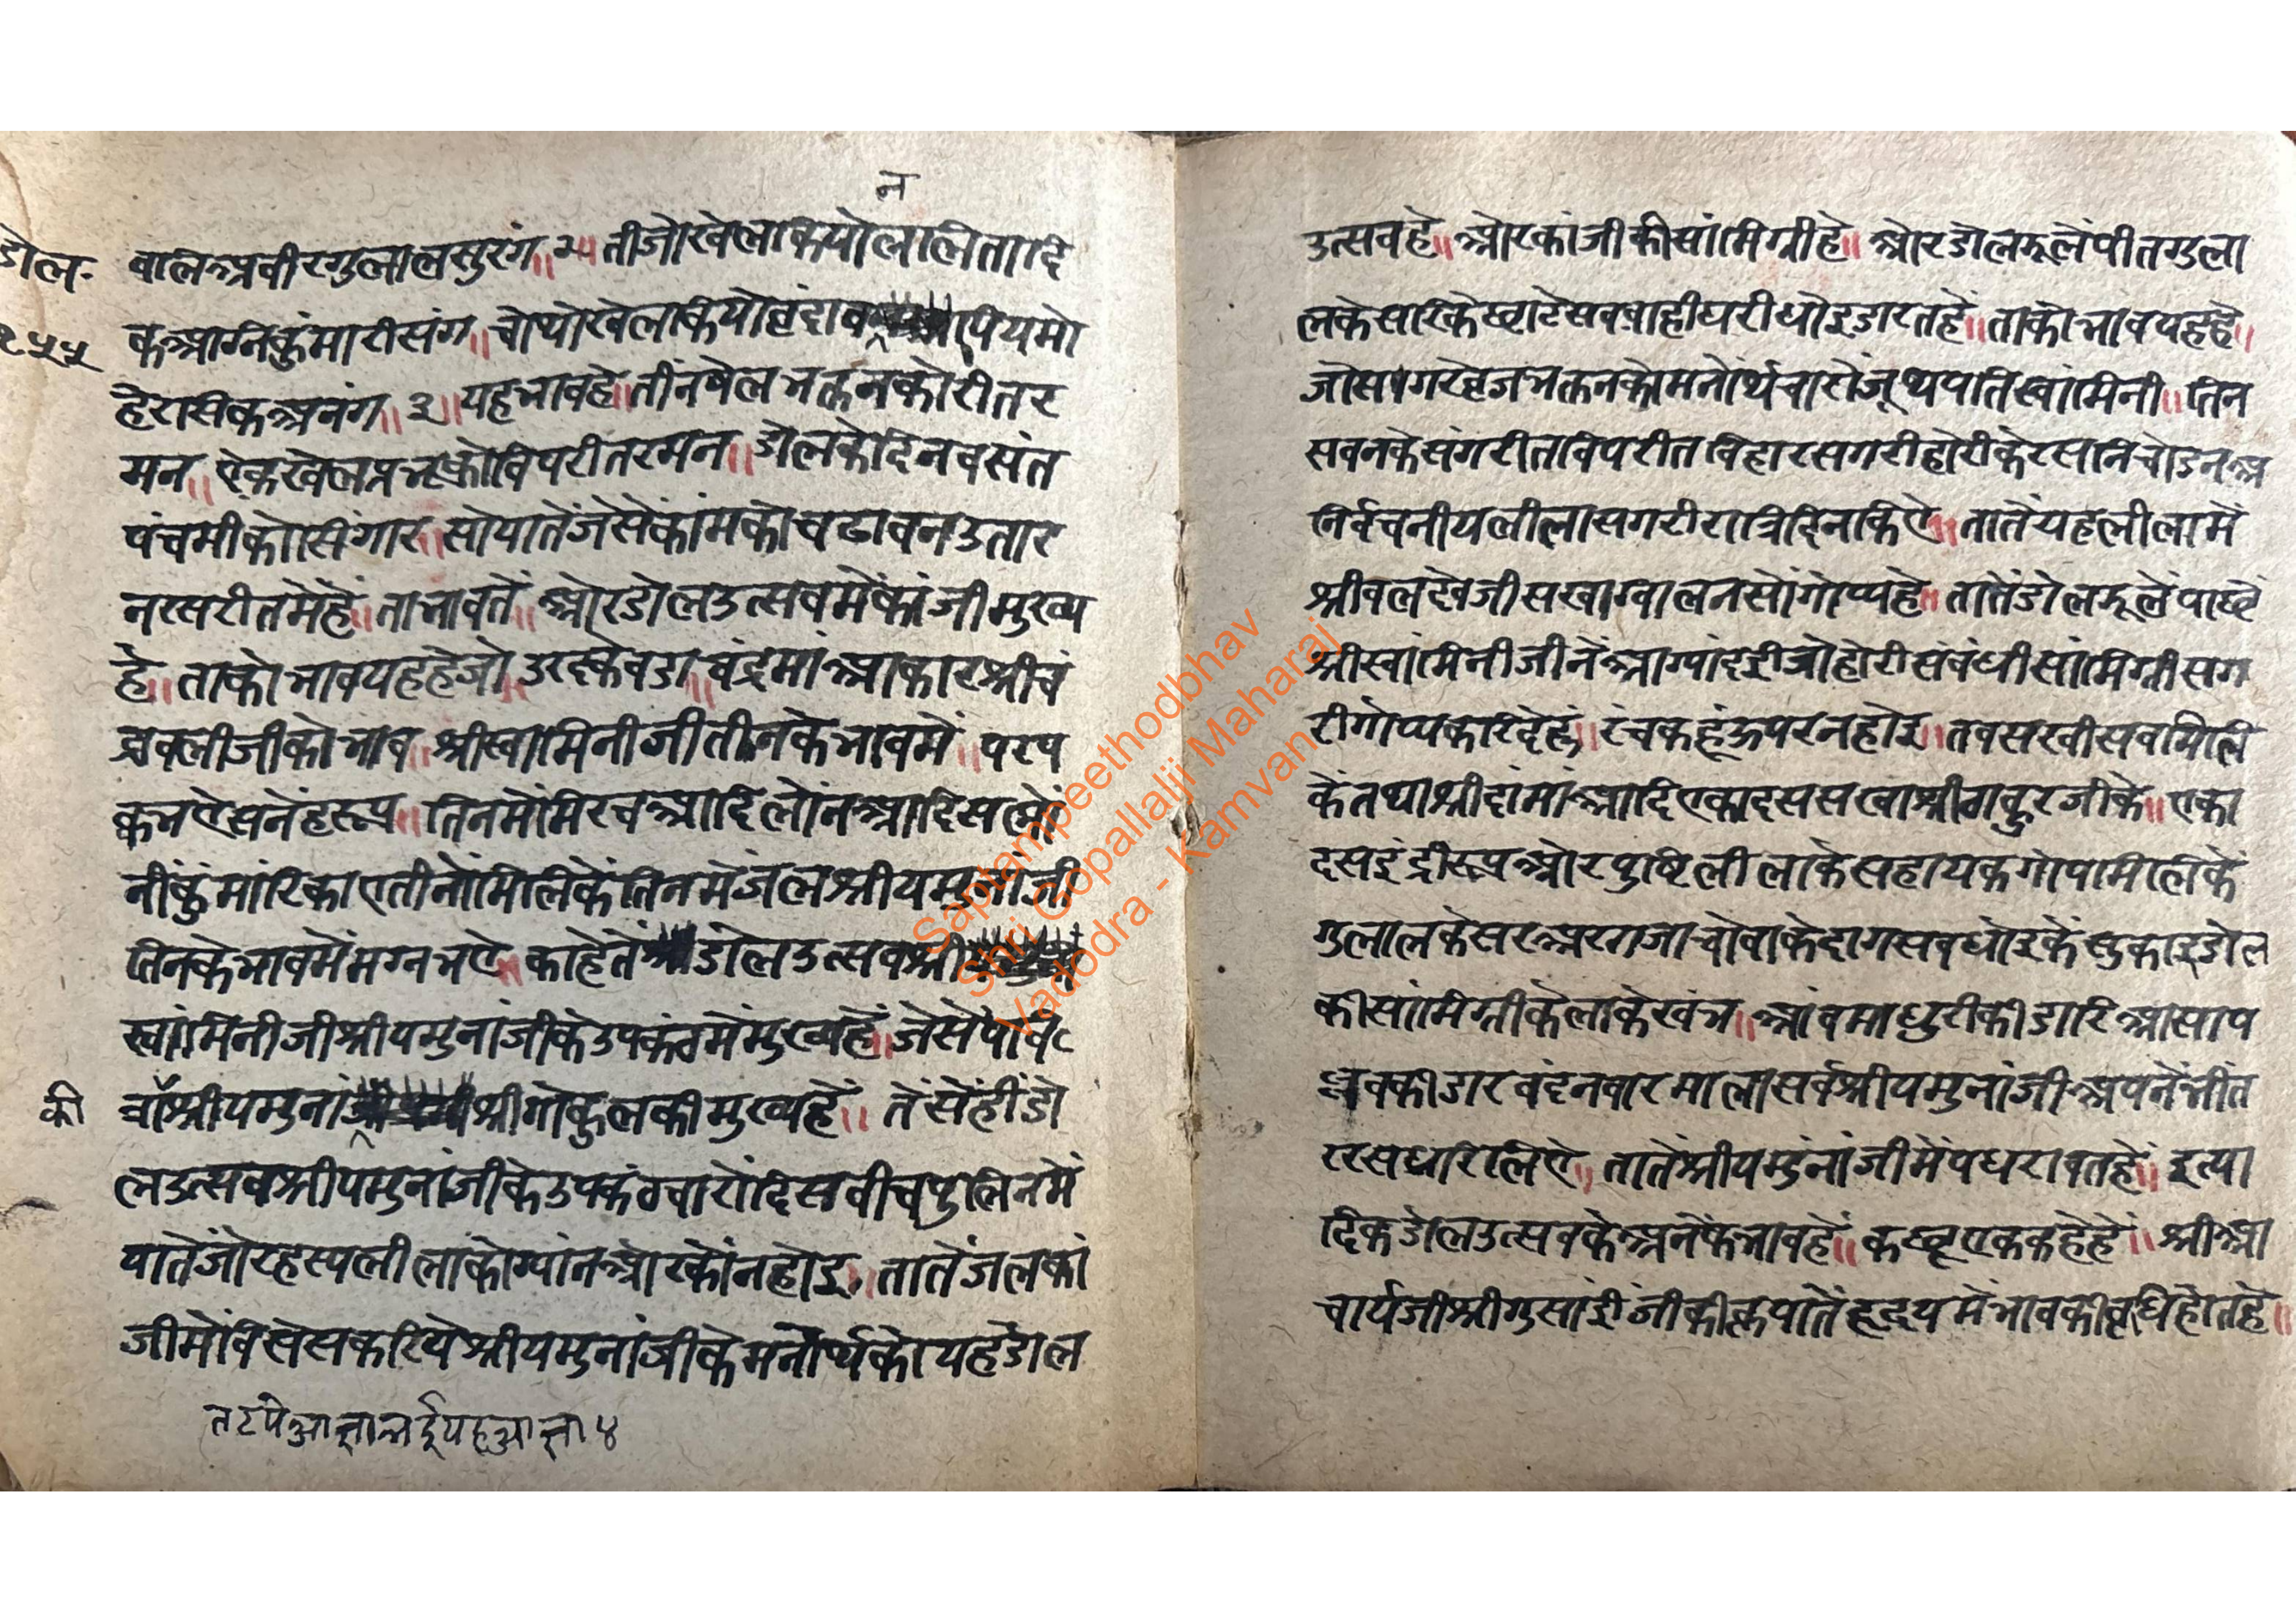 न
डोल॰ वालअवीरगुलालसुरंग॥२॥तीजोखेलकियोललितादि
२५५ कअग्निकुंमारीसंग॥चोथोखेलकियोवृंदावपियमो
हेरसिकअनंग॥३॥यहभावहे॥तींनषेलभक्तनकोरीतर
मन॥ऐकखेलप्रभूकोविपरीतरमन॥डोलकेदिनवसंत
पंचमीकोसिंगार॥सोयातेंजेसेंकांमकोचढावनउतार
नरसरीतमेंहें॥ताभावतें॥ओरडोलउत्सवमेंकांजीमुख्य
हे॥ताकोभावयहहेजो॥उरदकेवडा॥चंद्रमांआकारश्रीचं
द्रावलीजीकोभाव॥श्रीस्वामिनीजीतीनकेभावमें॥परप
क्कभऐसनेंहरूप॥तिनमेंमिरचआदिलोंनआदिसलों
नींकुंमारिकाएतीनोंमिलिकेंतिनमेंजलश्रीयमुनांजी
तिनकेभावमेंमग्नभऐ॥काहेतेंडोलउत्सवश्री
स्वांमिनीजीश्रीयमुनांजीकेउपकंठमेंमुख्यहें॥जेसेंपांव
की चोंश्रीयमुनांश्रीगोकुलकीमुख्यहें॥तेंसेंहींडो
लउत्सवश्रीयमुनांजीकेउपकंठचारोंदिसवीचपुलिनमें
यातेंजोरहस्यलीलाकोग्यांनओरकोंनहोइ॥तातेंजलकां
जीमेंविसेसकरियेश्रीयमुनांजीकेमनोर्थकोयहडोल
तटपेआज्ञालईयहआज्ञा४
उत्सवहे॥ओरकांजीकीसांमिग्रीहे॥ओरडोलझूलेंपीतगुला
लकेसरिकेछाटेसववाहीघरीधोइडारतहें॥ताकोभावयहहे॥
जोसगरेव्रजभक्तनकोमनोर्थचारोंजूथपतिस्वांमिनी॥तिन
सवनकेसंगरीतविपरीतविहारसगरीहोरीकेरसनिचोडनअ
निर्वचनीयलीलासगरीरात्रिदिनकिऐ॥तातेंयहलीलामें
श्रीवलदेवजीसखाग्वालनसोंगोप्यहे॥तातेंडोलझूलेंपाछें
श्रीस्वांमिनीजीनेंआग्यांदईजोहोरीसंवंधीसांमिग्रीसग
रीगोप्यकरिदेहु॥रंचकहूंऊपरनहोइ॥तवसखीसवमिलि
केंतथाश्रीदांमांआदिएकादससखाश्रीठाकुरजीके॥एका
दसइंद्रीरूपओरपुष्टिलीलाकेसहायकगोपमिलिकें
गुलालकेसरअरगजाचोवाकेदागसवधोइकेंसुकाइडोल
कीसांमिग्रीकेलाकेखंभ॥आंवमाधुरीकीडारिआसाप
ल्लवकीडारवंदनवारमालासर्वश्रीयमुनांजीअपनेंभींत
ररसधारिलिऐ॥तातेंश्रीयमुंनांजीमेंपधरावतहें॥इत्या
दिकडोलउत्सवकेअनेंकभावहें॥कछूएककहेहें॥श्रीआ
चार्यजीश्रीगुसांईंजीकीकृपातेंहृदयमेंभावकीवृधिहोतहे॥
Saptampeethodbhav
Shri Gopallalji Maharaj
Vadodra - Kamvan